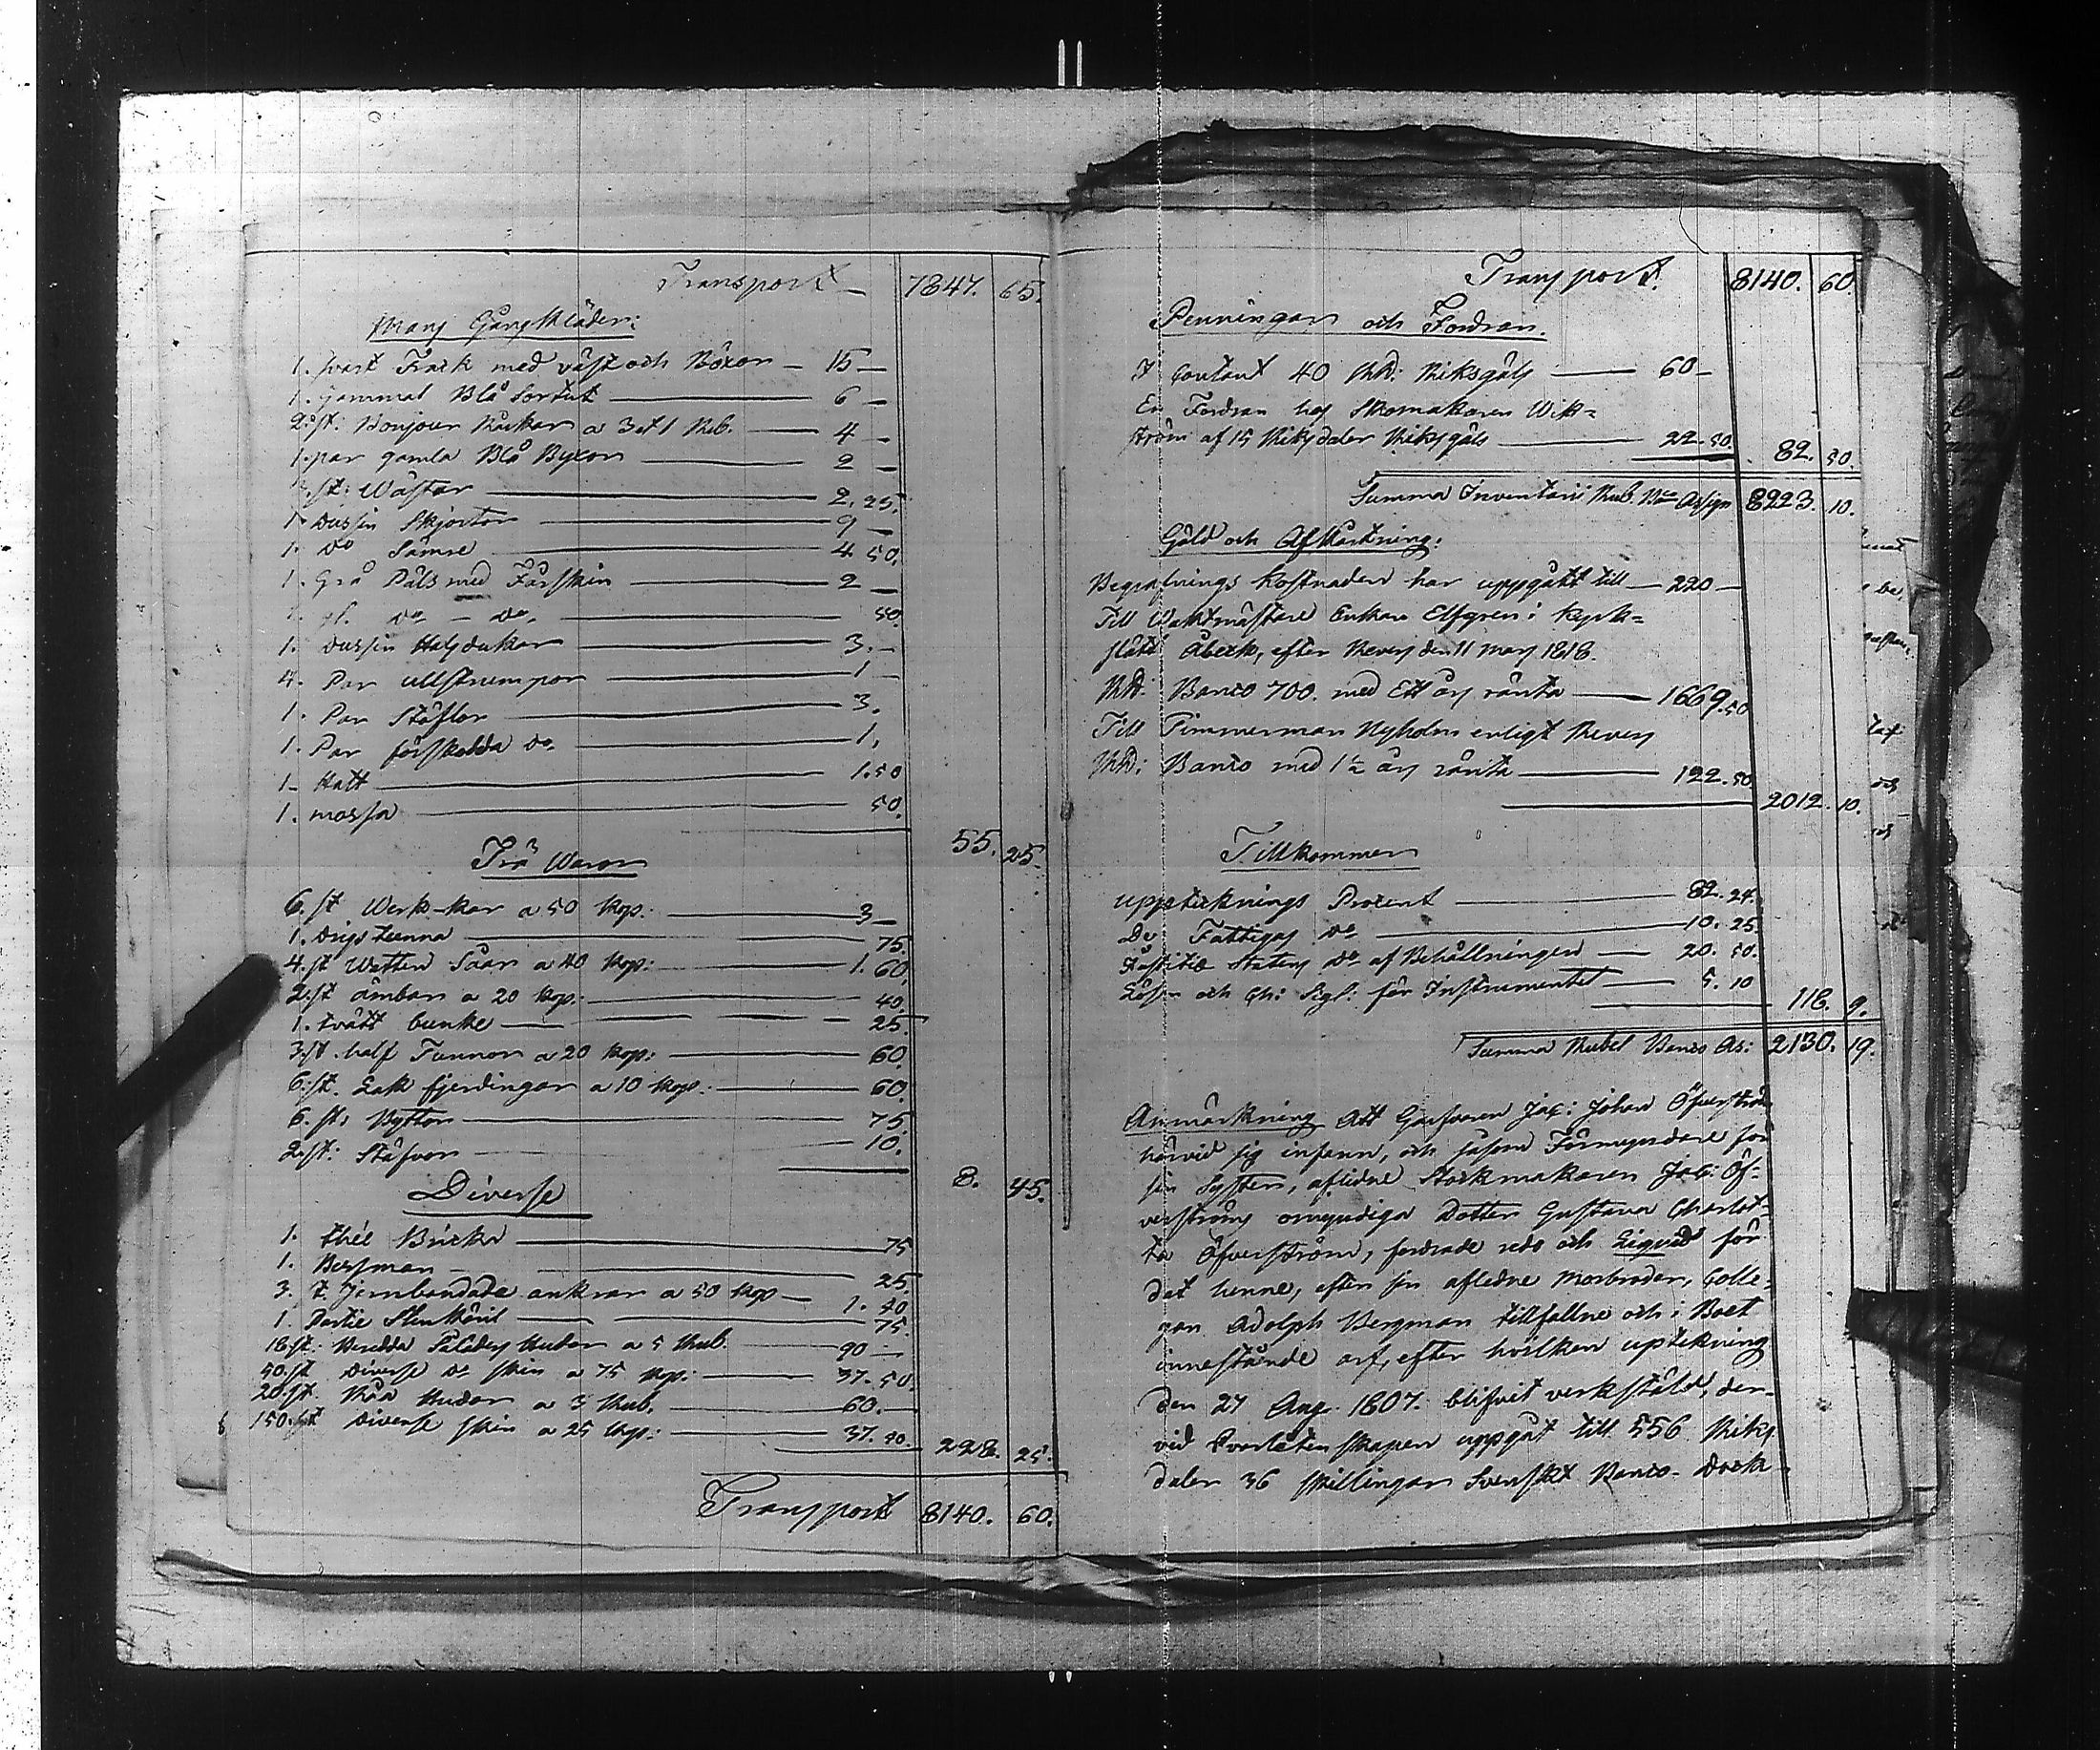 Transport 7847. 65.
Mans Gångkläder:
1. svart Frack med väst och Böxor 15 —
1. gammal Blå Sortut 6 —
2. st: Bonjour Råckar a 3 et 1 Rub. 4 —
1. par gamla Blå Byxor 2 —
st: Wästar 2. 25.
1. Dussin Skjortor 9 —
1. Do Sämre 4 50.
1. Grå Päls med Fårskin 2 —
1. gl. Do — Do. 50.
1. Dussin Halsdukar 3. —
4. Par ullstrumpor 1 —
1. Par Stöflor 3.
1. Par förskodda Do 1.
1. Hatt 1. 50
1. mössa 50.
55. 25.
Trä Waror
6. st Werk-kar a 50 Kop: 3 —
1. Drigs tunna 75
4. st Watten Såar a 40 Kop: 1. 60.
2. st ämbar a 20 Kop: 40.
1. tvätt bunke 25.
3. st. half Tunnor a 20 Kop: 60.
6. st. Lak fjerdingar a 10 Kop: 60.
6. st: Byttor 75.
2. st: Stäfvor 10.
8. 45.
Diverse
1. thée Bricka 75
1. Besman 25.
3. t. Jernbandade ankrar a 50 Kop 1. 50
1. Partie Stenkäril 75.
18 st: Beredda Sulläders Hudar a 5 Rub. 90 —
50. st Diverse Do skin a 75 Kop: 37. 50.
20. st. Råa Hudar a 3 Rub. 60. —
150. st Diverse skin a 25 Kop: 37. 50.
228. 25.
Transport 8140. 60.
Transport. 8140. 60.
Penningar och Fordran.
I Contant 40 Rd: Riksgäls 60 —
En Fordran hos Skomakaren Wik=
ström af 15 Riksdaler Riksgäls 22. 50. 82. 50.
Summa Inventarii Rub. Bco Assign 8223. 10.
Gäld och Afkortning:
Begrafnings kostnaden har uppgått till 220 —
Till Waktmästare Enkan Elfgren i Kyrk=
slätt Åbeck, efter Revers den 11 Mars 1818.
Rd: Banco 700. med Ett års ränta 1669. 50
Till Timmerman Nyholm enligt Revers
Rd: Banco med 1½ års ränta 122. 50.
2012. 10.
Tillkommer
uppteknings Procent 82. 24.
De Fattigas Do 10. 25.
Justitiæ Statens Do af Behållningen 20. 50.
Lösen och Ch: Sigl: för Instrumentet 5. 10
118. 9.
Summa Rubel Banco As: 2130. 19.
Anmärkning Att Garfvaren Jac: Johan Öfverström
härvid sig infann, och såsom Förmyndare för
sin Systers, aflidne Stockmakaren Jac: Öf-
verströms omyndiga Dotter Gustava Charlot-
ta Öfverström, fordrade redo och Liqvid för
det henne, efter sin aflidne Morbroder, Colle-
gan Adolph Bergman tillfallne och i Boet
innestående arf, efter hvilken uptekning
den 27 Aug. 1807. blifvit verkstäld, der-
vid Qvarlåtenskapen uppgåt till 556 Riks
daler 36 skillingar Svenskt Banco. Dock